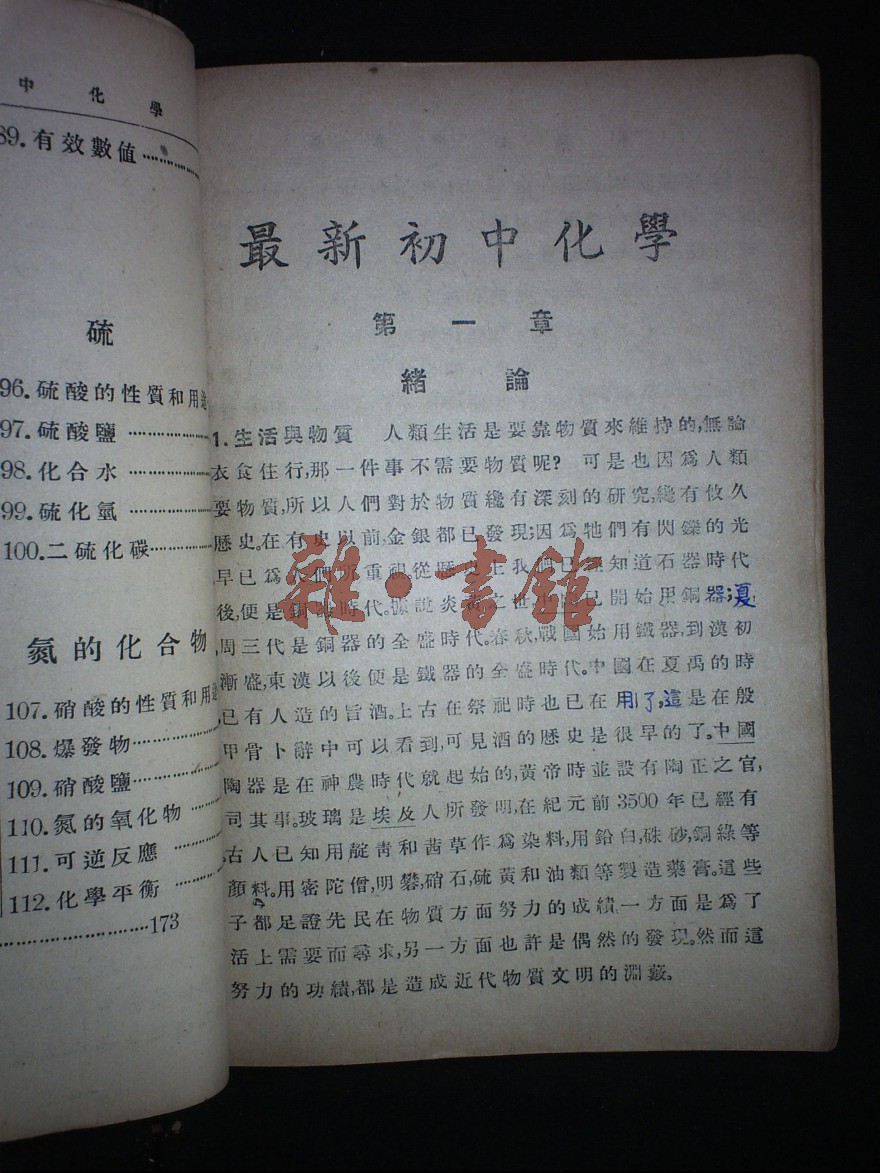 中化學
89.有效數值
硫
96.硫酸的性質和用途
97.硫酸鹽
98.化合水
99.硫化氫
100.二硫化碳
氮的化合物
107.硝酸的性質和用途
108.爆發物
109.硝酸鹽
110.氮的氧化物
111.可逆反應
112.化學平衡
173
最新初中化學
第一章
緒論
1.生活與物質 人類生活是要靠物質來維持的,無論
衣食住行,那一件事不需要物質呢? 可是也因爲人類
要物質,所以人們對於物質纔有深刻的研究,纔有攸久
歷史。在有史以前,金銀都已發現;因爲牠們有閃鑠的光
早已爲人們所重視從歷史上我們已知道石器時代
後,便是銅器時代。據說炎黃之世已開始用銅器;夏
周三代是銅器的全盛時代。春秋,戰國始用鐵器,到漢初
漸盛,東漢以後便是鐵器的全盛時代。中國在夏禹的時
已有人造的旨酒。上古在祭祀時也已在用了,這是在殷
甲骨卜辭中可以看到,可見酒的歷史是很早的了。中國
陶器是在神農時代就起始的,黃帝時並設有陶正之官,
司其事。玻璃是埃及人所發明,在紀元前3500年已經有
古人已知用靛靑和茜草作爲染料,用鉛白,硃砂,銅綠等
顏料。用密陀僧,明礬,硝石,硫黃和油類等製造藥膏。這些
子都足證先民在物質方面努力的成績一方面是爲了
活上需要而尋求,另一方面也許是偶然的發現。然而這
努力的功績,都是造成近代物質文明的淵藪。
雜·書館